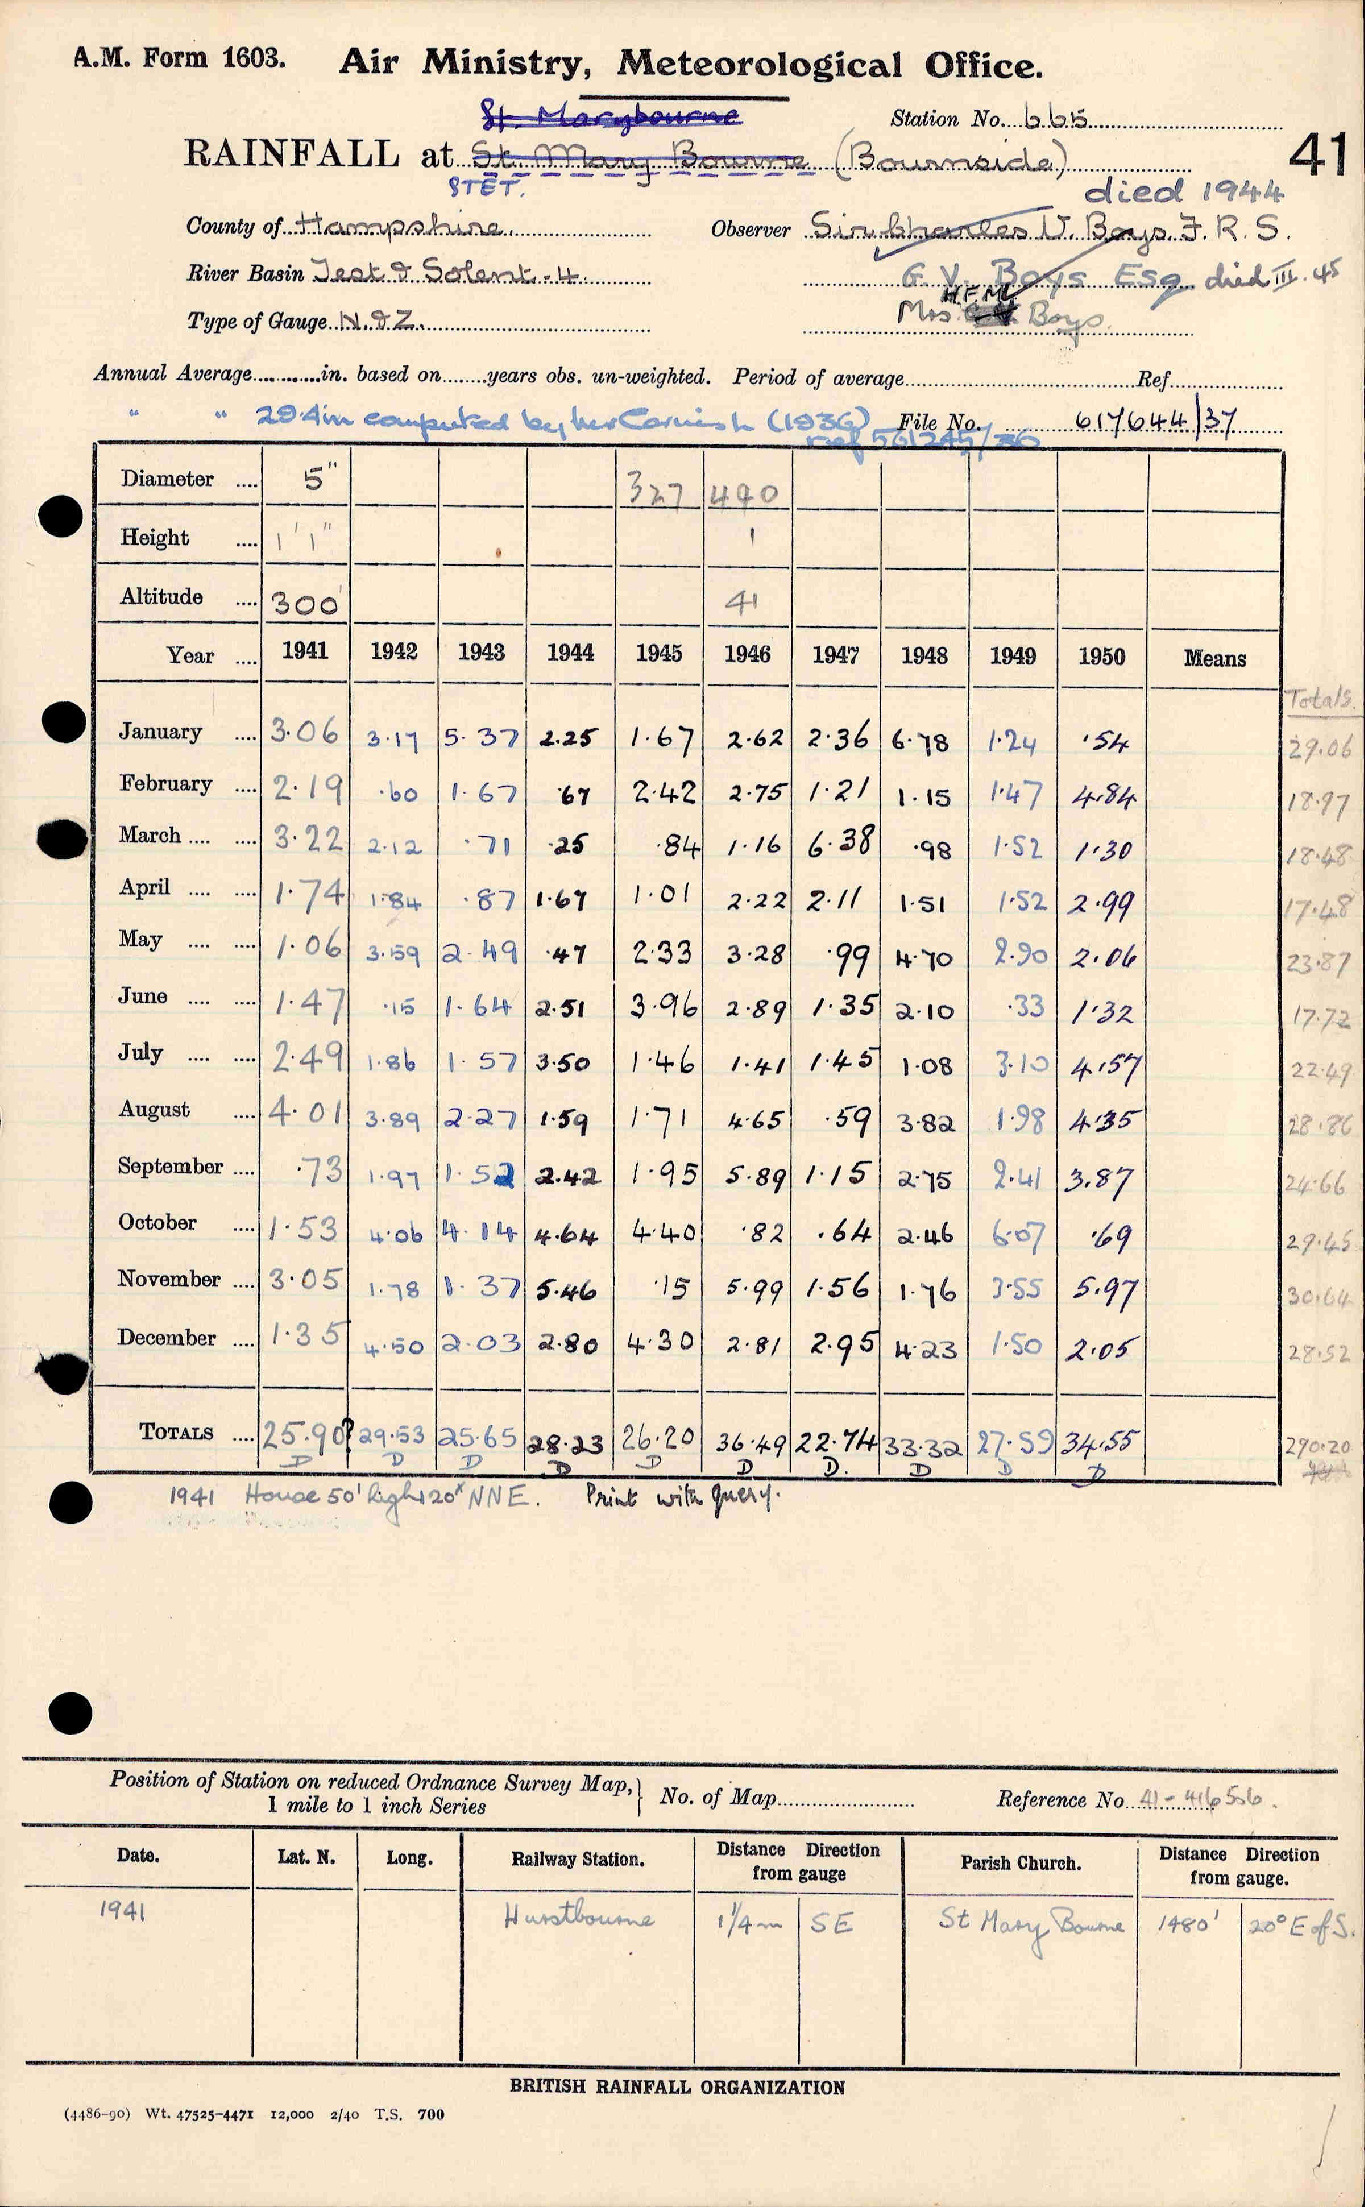 A.M. Form 1603. Air Ministry, Meteorological Office.
St. Marybourne
Station No. 665
RAINFALL at St. Mary Bourne (Bournside) 41
STET.
died 1944
County of Hampshire. Observer Sir Charles V. Boys F.R.S.
River Basin Test & Solent - 4. G. V. Boys Esq died III. 45
H.F.M.
Type of Gauge N. & Z. Mrs Boys.
Annual Average............in. based on........years obs. un-weighted. Period of average.......... Ref..........
" " 29.4in computed by Cornish (1936) File No. 617644/37
ref 561245/36
Diameter .... 5" 327 490
Height .... 1' 1" 1
Altitude .... 300' 41
Year .... 1941 1942 1943 1944 1945 1946 1947 1948 1949 1950 Means
Totals.
January .... 3.06 3.17 5.37 2.25 1.67 2.62 2.36 6.78 1.24 .54 29.06
February .... 2.19 .60 1.67 .67 2.42 2.75 1.21 1.15 1.47 4.84 18.97
March .... .... 3.22 2.12 .71 .25 .84 1.16 6.38 .98 1.52 1.30 18.48
April .... .... 1.74 1.84 .87 1.67 1.01 2.22 2.11 1.51 1.52 2.99 17.48
May .... .... 1.06 3.59 2.49 .47 2.33 3.28 .99 4.70 2.90 2.06 23.87
June .... .... 1.47 .15 1.64 2.51 3.96 2.89 1.35 2.10 .33 1.32 17.72
July .... .... 2.49 1.86 1.57 3.50 1.46 1.41 1.45 1.08 3.10 4.57 22.49
August .... 4.01 3.89 2.27 1.59 1.71 4.65 .59 3.82 1.98 4.35 28.86
September .... .73 1.97 1.52 2.42 1.95 5.89 1.15 2.75 2.41 3.87 24.66
October .... 1.53 4.06 4.14 4.64 4.40 .82 .64 2.46 6.07 .69 29.45
November .... 3.05 1.78 1.37 5.46 .15 5.99 1.56 1.76 3.55 5.97 30.64
December .... 1.35 4.50 2.03 2.80 4.30 2.81 2.95 4.23 1.50 2.05 28.52
TOTALS .... 25.90? 29.53 25.65 28.23 26.20 36.49 22.74 33.32 27.59 34.55 290.20
D D D D D D D. D D D
1941 House 50' high 120x NNE. Print with query.
Position of Station on reduced Ordnance Survey Map, } No. of Map.......... Reference No. 41-416506.
1 mile to 1 inch Series
Date. Lat. N. Long. Railway Station. Distance Direction from gauge Parish Church. Distance Direction from gauge.
1941 Hurstbourne 1 1/4 m SE St Mary Bourne 1480' 20° E of S.
BRITISH RAINFALL ORGANIZATION
(4486-90) Wt. 47525-4471 12,000 2/40 T.S. 700